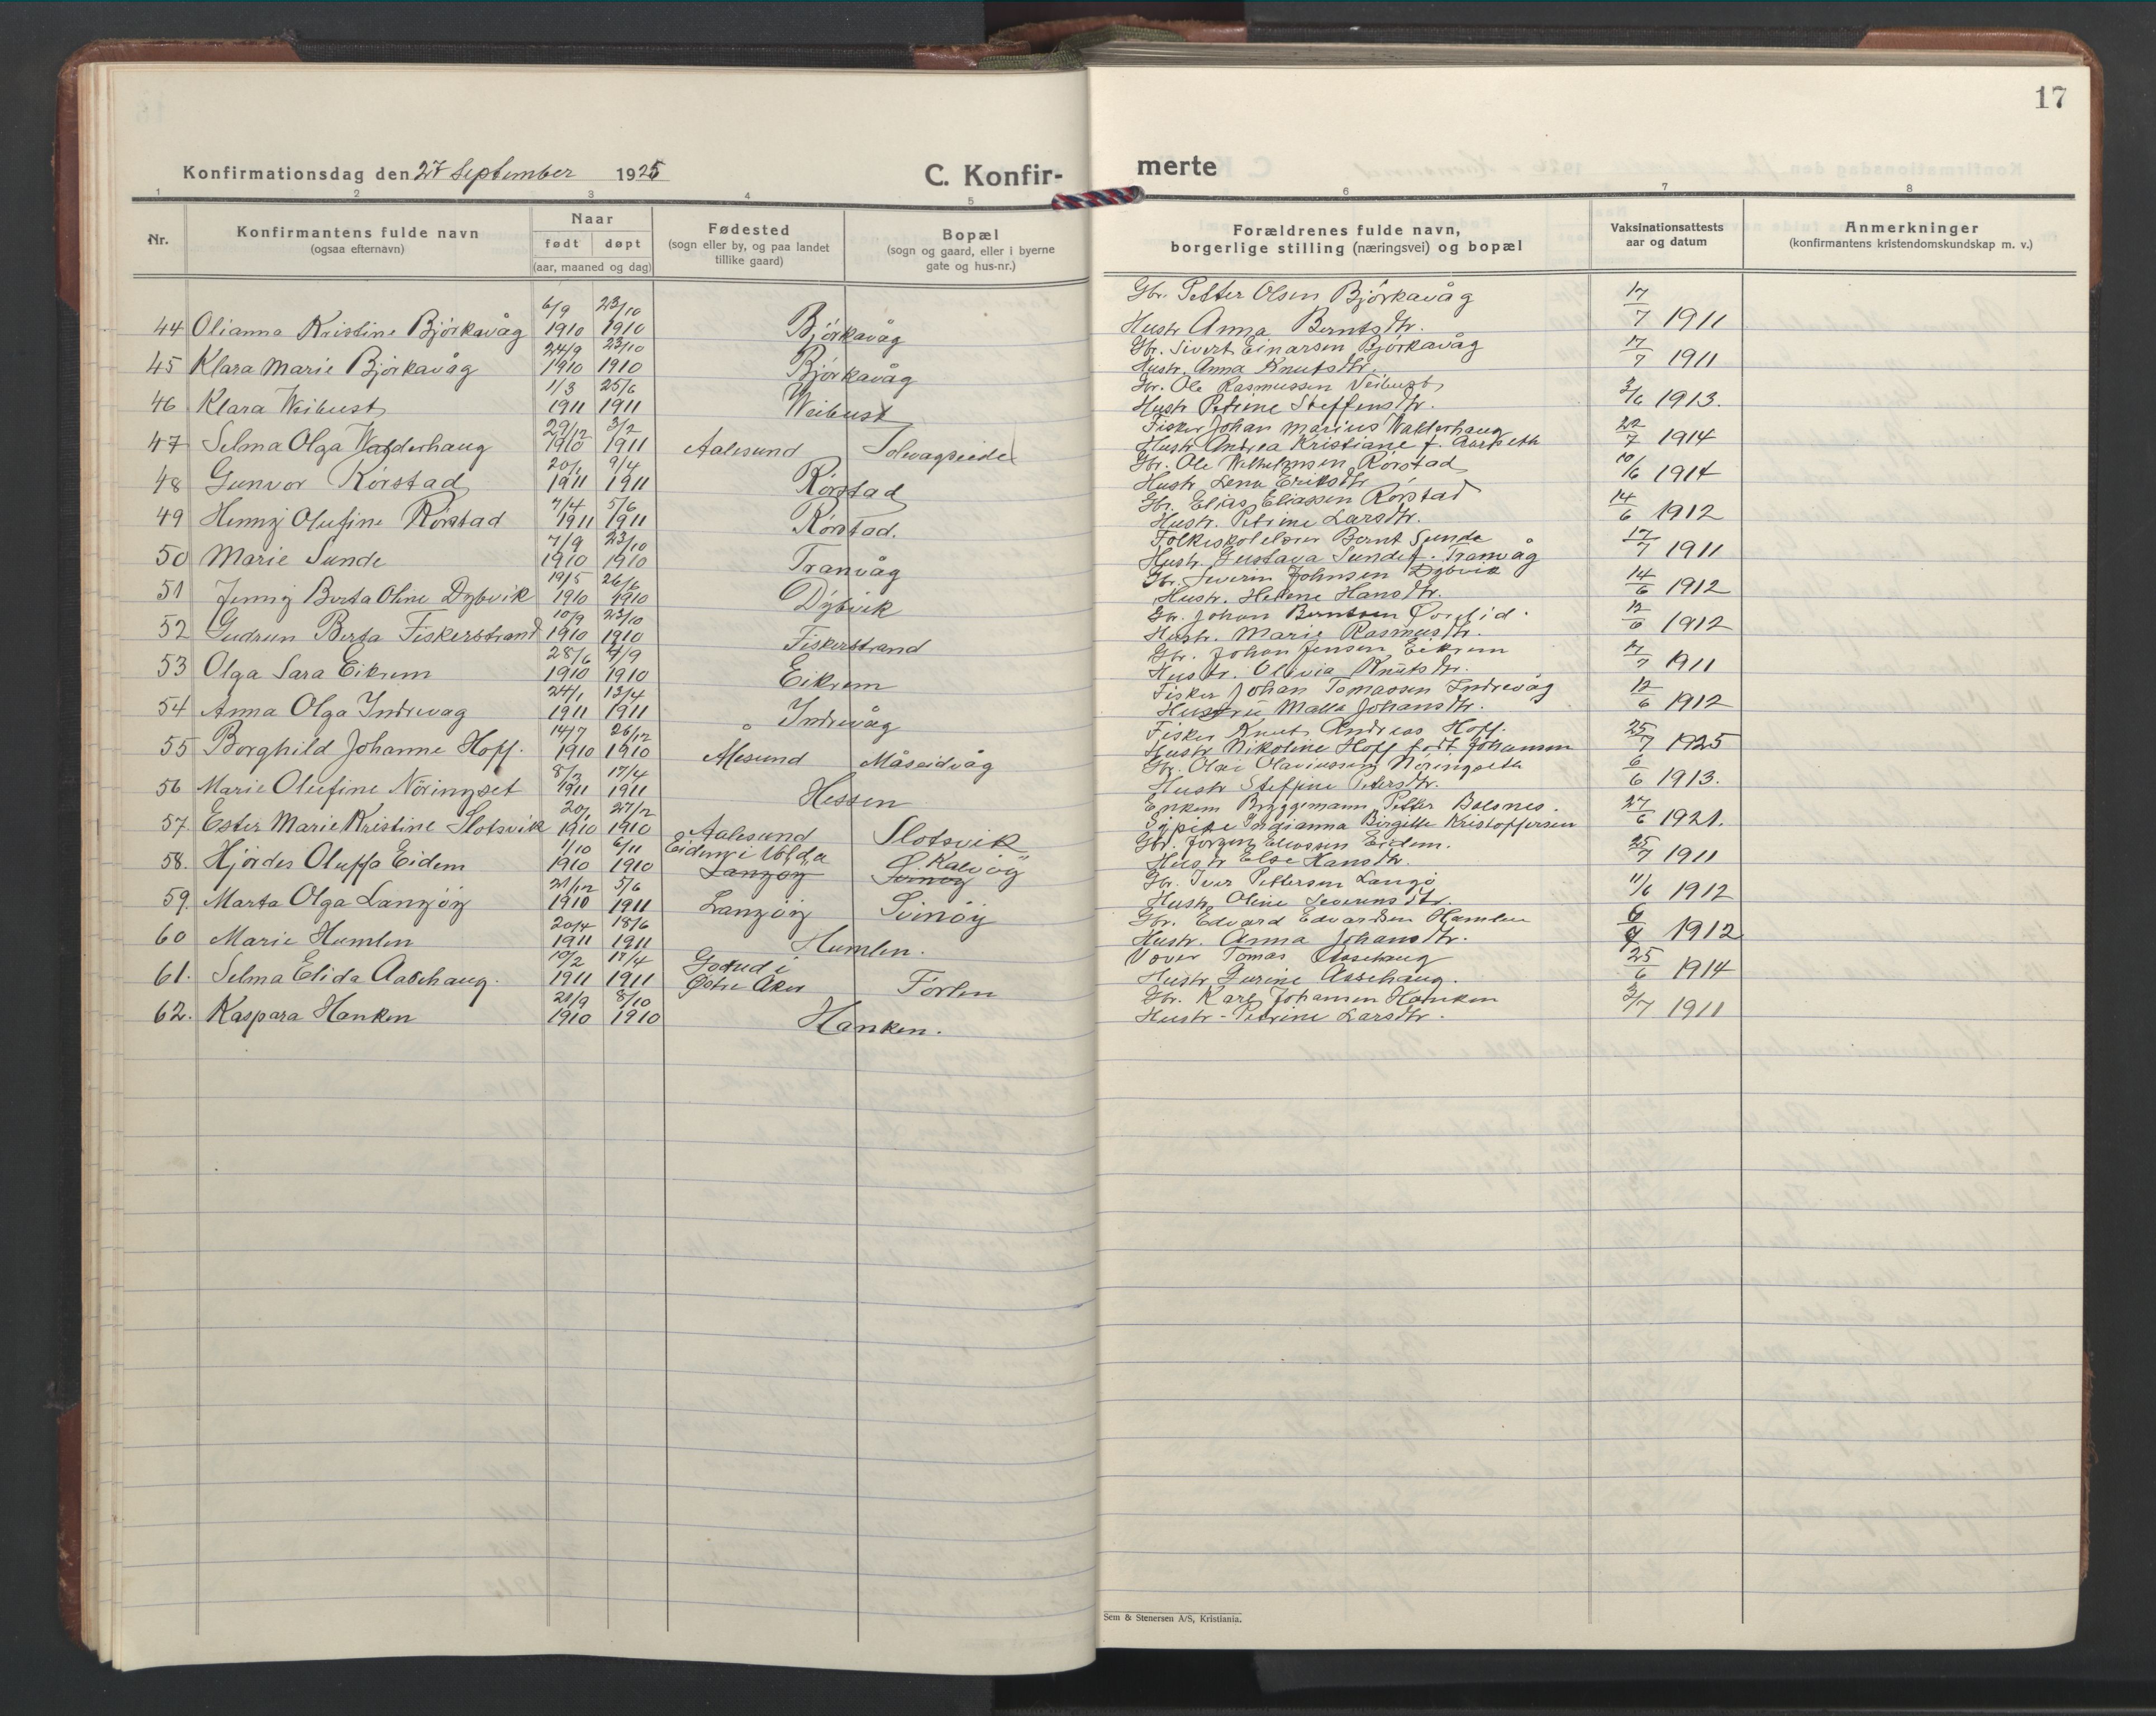 17
Konfirmationsdag den 27 September 1925
C. Konfir-
merte
1 2 3 4 5 6 7 8
Nr.
Konfirmantens fulde navn
(ogsaa efternavn)
Naar
født døpt
(aar, maaned og dag)
Fødested
(sogn eller by, og paa landet
tillike gaard)
Bopæl
(sogn og gaard, eller i byerne
gate og hus-nr.)
Forældrenes fulde navn,
borgerlige stilling (næringsvei) og bopæl
Vaksinationsattests
aar og datum
Anmerkninger
(konfirmantens kristendomskundskap m. v.)
6/9 23/10 Gbr. Petter Olsen Bjørkavåg 17/7
44 Olianna Kristine Bjørkavåg 1910 1910 Bjørkavåg Hustr Anna Berntsdtr. 1911
24/9 23/10 Gbr. Sivert Einarsen Bjørkavåg 17/7
45 Klara Marie Bjørkavåg 1910 1910 Bjørkavåg Hustr. Anna Knutsdtr. 1911
1/3 25/6 Gbr. Ole Rasmussen Veibust 3/6
46 Klara Weibust 1911 1911 Weibust Hustr Petrine Steffensdtr. 1913.
29/12 3/2 Fisker Johan Marius Walderhaug 22/7
47 Selma Olga Walderhaug 1910 1911 Aalesund Solvagseidet Hustr Andrea Kristiane f. Aarseth 1914
20/1 9/4 Gbr. Ole Wilhelmsen Rørstad 10/6
48 Gunvor Rørstad 1911 1911 Rørstad Hustr Lena Eriksdtr 1914
7/4 5/6 Gbr. Elias Eliassen Rørstad 14/6
49 Henny Olufine Rørstad 1911 1911 Rørstad. Hustr. Petrine Larsdtr. 1912
7/9 23/10 Folkeskolelærer Bernt Sunde 17/7
50 Marie Sunde 1910 1910 Tranvåg Hustr. Gustava Sunde f. Tranvåg 1911
19/5 26/6 Gbr. Severin Johnsen Dybvik 14/6
51 Jenny Berta Oline Dybvik 1910 1910 Dybvik Hustr. Helene Hansdtr. 1912
10/9 23/10 Gbr. Johan Berntsen 12/6
52 Gudrun Berta Fiskerstrand 1910 1910 Fiskerstrand Hustr. Marie Rasmusdtr. 1912
28/6 4/9 Gbr. Johan Jensen Eikrem 17/7
53 Olga Sara Eikrem 1910 1910 Eikrem Hustr. Olivia Knutsdtr. 1911
24/1 13/4 Fisker Johan Tomassen Indrevåg 12/6
54 Anna Olga Indrevag 1911 1911 Indrevåg Hustru Malla Johansdtr. 1912
14/7 26/12 Fisker Knut Andreas Hoff. 25/7
55 Borghild Johanne Hoff. 1910 1910 Ålesund Måseidvåg Hustr Nikoline Hoff født Johansen 1925
8/3 17/4 Gbr. Olai Olaviussen Nøringseth 6/6
56 Marie Olufine Nøringset 1911 1911 Hessen Hustr Steffine Petersdtr. 1913.
20/1 27/12 Enkem Bryggemann Petter Balsnes. 27/6
57. Ester Marie Kristine Slotsvik 1910 1910 Aalesund Slotsvik Birgitte Kristoffersen 1921.
1/10 6/11 Eidem i Volda Kalvøy Gbr. Jørgen Eliassen Eidem. 25/7
58. Hjørdes Oluffa Eidem 1910 1910 Langøy Svinøy Hustr Else Hansdtr. 1911
21/12 5/6 Gbr. Iver Pettersen Langø 11/6
59. Marta Olga Langøy 1910 1911 Langøy Svinøy Hustr. Oline Severinsdtr. 1912
20/4 18/6 Gbr. Edvard Edvardsen Humlen 6/7
60 Marie Humlen 1911 1911 Humlen. Hustr. Anna Johansdtr. 1912
10/2 17/4 i Tomas Aasehaug 25/6
61. Selma Elida Aasehaug. 1911 1911 Østre Aker Førlen Hustr Gurine Aasehaug. 1914
21/9 8/10 Gbr. Karl Johansen Hanken 3/7
62. Kaspara Hanken 1910 1910 Hanken. Hustr - Petrine Larsdtr. 1911
Sem & Stenersen A/S, Kristiania.